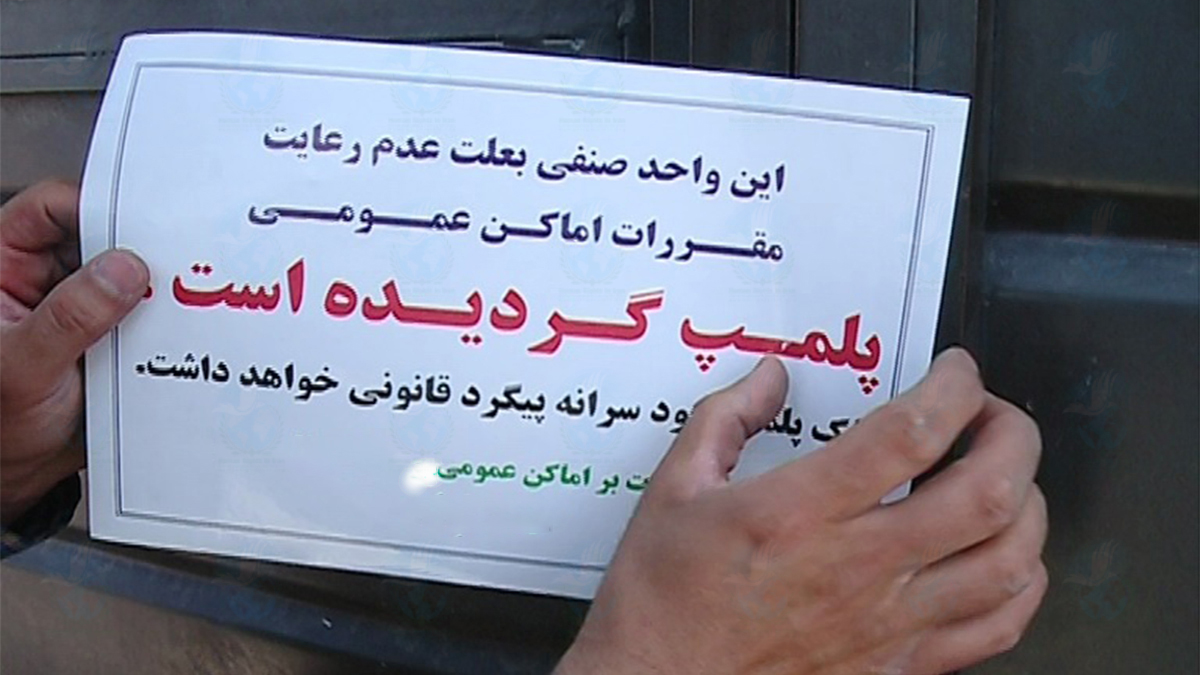 این واحد صنفی بعلت عدم رعایت
مقررات اماکن عمومی
پلمپ گردیده است .
سرانه پیگرد قانونی خواهد داشت.
بر اماکن عمومی